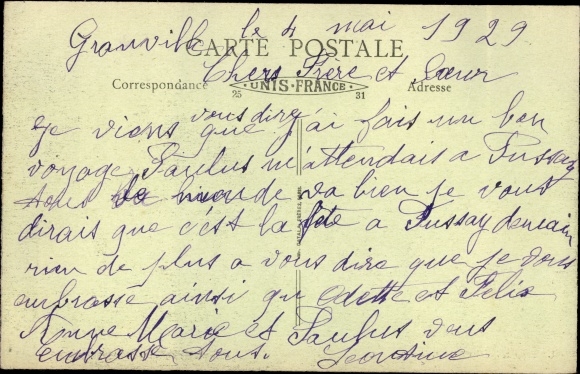 Granville le 4 mai 1929
CARTE POSTALE
Chers Frère et Sœur
Correspondance
UNIS-FRANCE
Adresse
25
31
vous dire
Je viens que j'ai fais un bon
voyage Paulus m'attendais a Pussay
tous le monde va bien je vous
dirais que c'est la fête a Pussay demain
rien de plus a vous dire que je vous
embrasse ainsi qu Odette et Felix
Anne Marie et Paulus vous
embrasse tous. Leontine